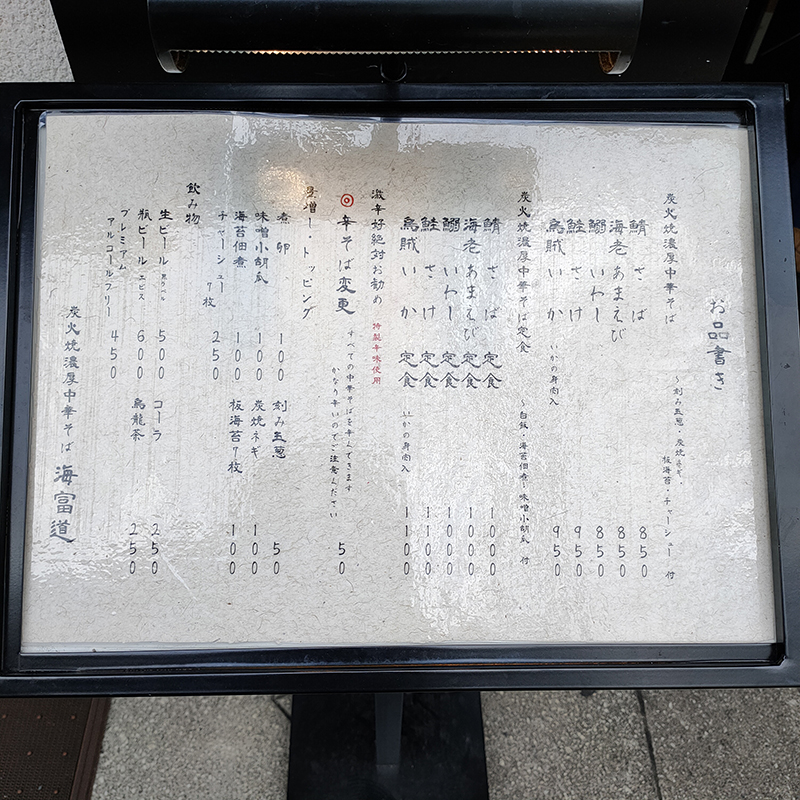 お品書き
炭火焼濃厚中華そば 〜刻み玉葱・炭焼ネギ・
板海苔・チャーシュー 付〉
鯖 さば 850
海老 あまえび 850
鰯 いわし 850
鮭 さけ 950
烏賊 いか いかの身肉入 950
炭火焼濃厚中華そば定食 〜白飯・海苔佃煮・味噌小胡瓜 付
鯖 さば 定食 1000
海老 あまえび 定食 1000
鰯 いわし 定食 1000
鮭 さけ 定食 1100
烏賊 いか 定食 いかの身肉入 1100
激辛好絶対お勧め 特製辛味使用
◎ 辛そば変更 すべての中華そばを辛くできます
かなり辛いのでご注意ください 50
増し・トッピング
煮卵 100 刻み玉葱 50
味噌小胡瓜 100 炭焼ネギ 100
海苔佃煮 100 板海苔7枚 100
チャーシュー 7枚 250
飲み物
生ビール 黒ラベル 500 コーラ 250
瓶ビール エビス 600 烏龍茶 250
プレミアム
アルコールフリー 450
炭火焼濃厚中華そば 海富道